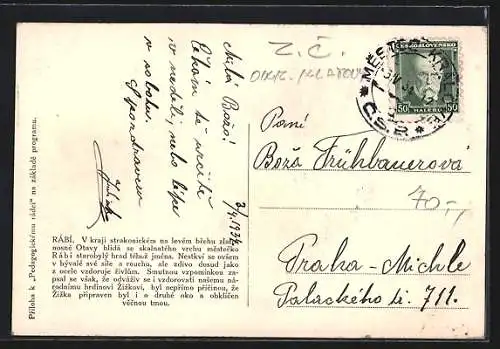 Příloha k „Pedagogickému rádci“ na základě programu.
Milá Božo!
Čekám tě určitě
v neděli nebo lépe
v sobotu.
S pozdravem
3/4 1934
RÁBÍ. V kraji strakonickém na levém břehu zlato-
nosné Otavy hlídá se skalnatého vrchu městečka
Rábí starobylý hrad téhož jména. Nestkví se ovšem
v bývalé své síle a rouchu, ale advivo dosud jako
z ocele vzdoruje živlům. Smutnou vzpomínkou za-
psal se však, že odváživ se i vzdorovati našemu ná-
rodnímu hrdinovi Žižkovi, byl nepřímo příčinou, že
Žižka připraven byl i o druhé oko a obklíčen
věčnou tmou.
Z.Č.
OKR. KLATOVY
ČESKOSLOVENSKO
50 50
HALÉŘŮ
MĚSTEC
Č.S.R.
Paní
Boža Frühbauerová
70,-
Praha - Michle
Palackého tř. 711.